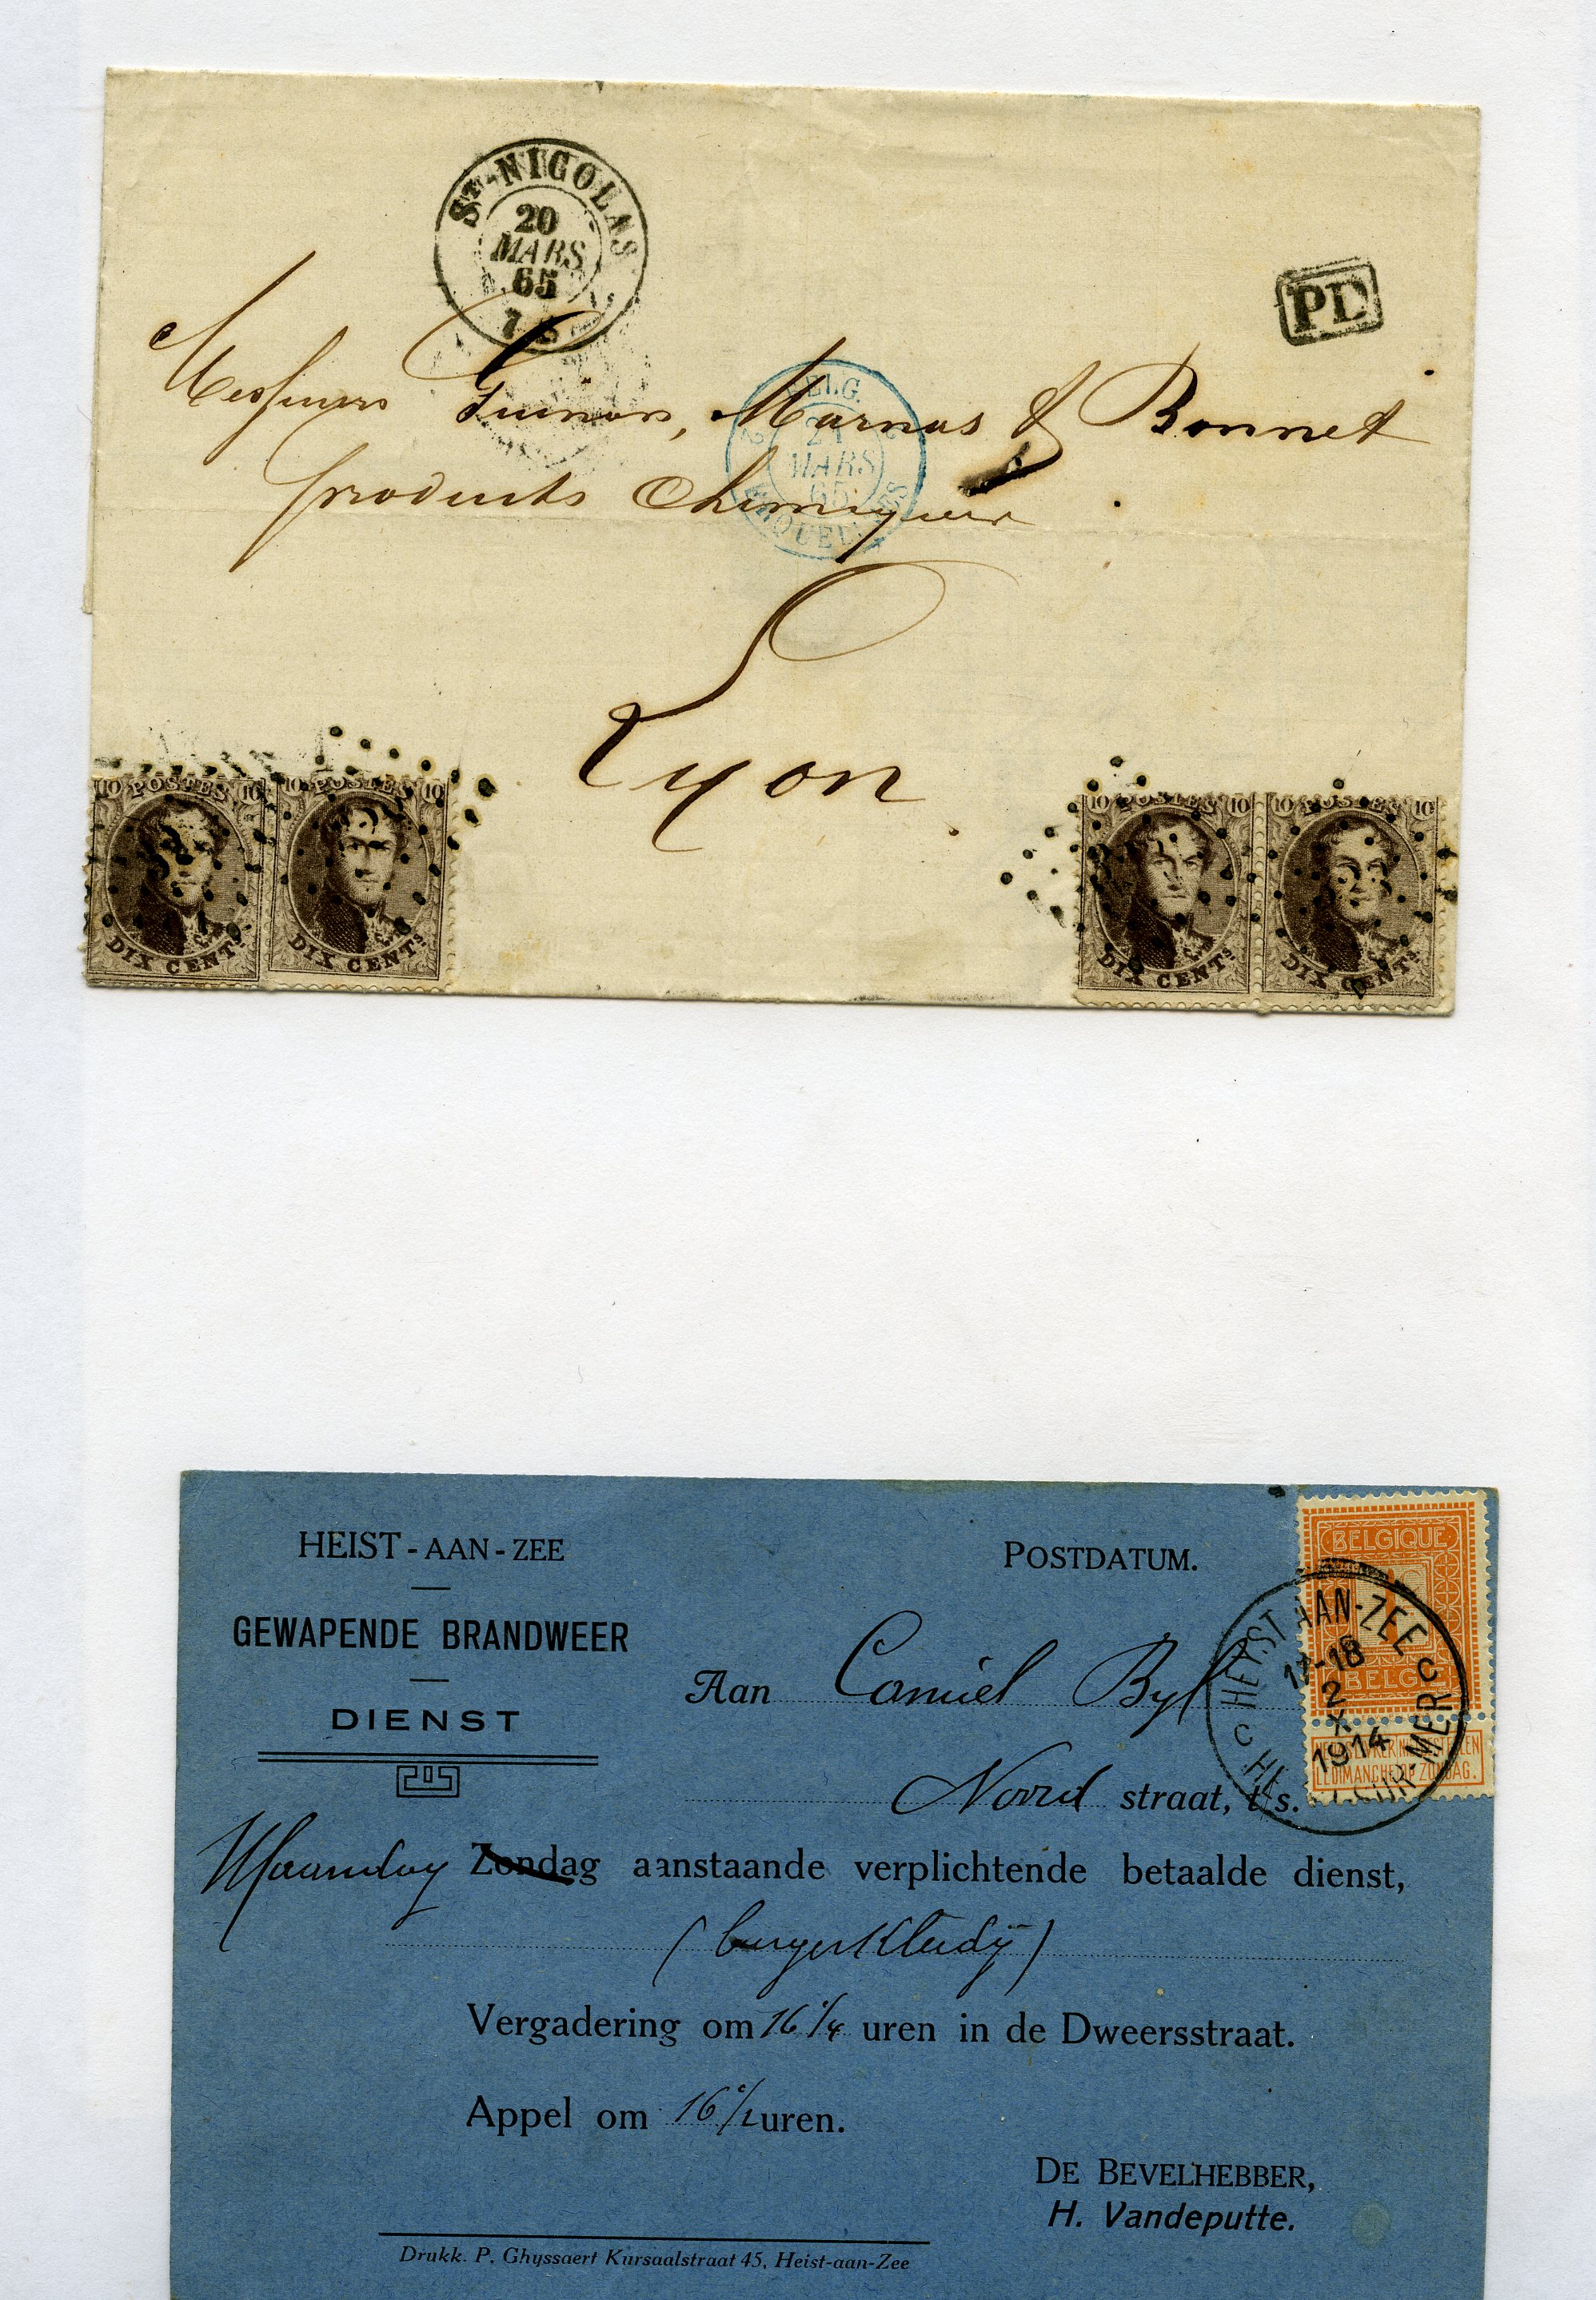 ST NICOLAS
20
MARS
65
PD
Messieurs Guinon, Marnas & Bonnet
BELG.
21
MARS
65
produits Chimiques
Lyon
10 POSTES 10
DIX CENTS
10 POSTES 10
DIX CENTS
10 POSTES 10
DIX CENTS
10 POSTES 10
DIX CENTS
HEIST-AAN-ZEE
GEWAPENDE BRANDWEER
DIENST
POSTDATUM.
BELGIQUE
1
BELGIË
HEYST AAN-ZEE
2
X
1914
SUR-MER
Aan Camiel Byl
Noord straat, t/s.
Maandag Zondag aanstaande verplichtende betaalde dienst,
(burgerkleedij)
Vergadering om 16 1/4 uren in de Dweersstraat.
Appel om 16 1/2 uren.
DE BEVELHEBBER,
H. Vandeputte.
Drukk. P. Ghyssaert Kursaalstraat 45, Heist-aan-Zee